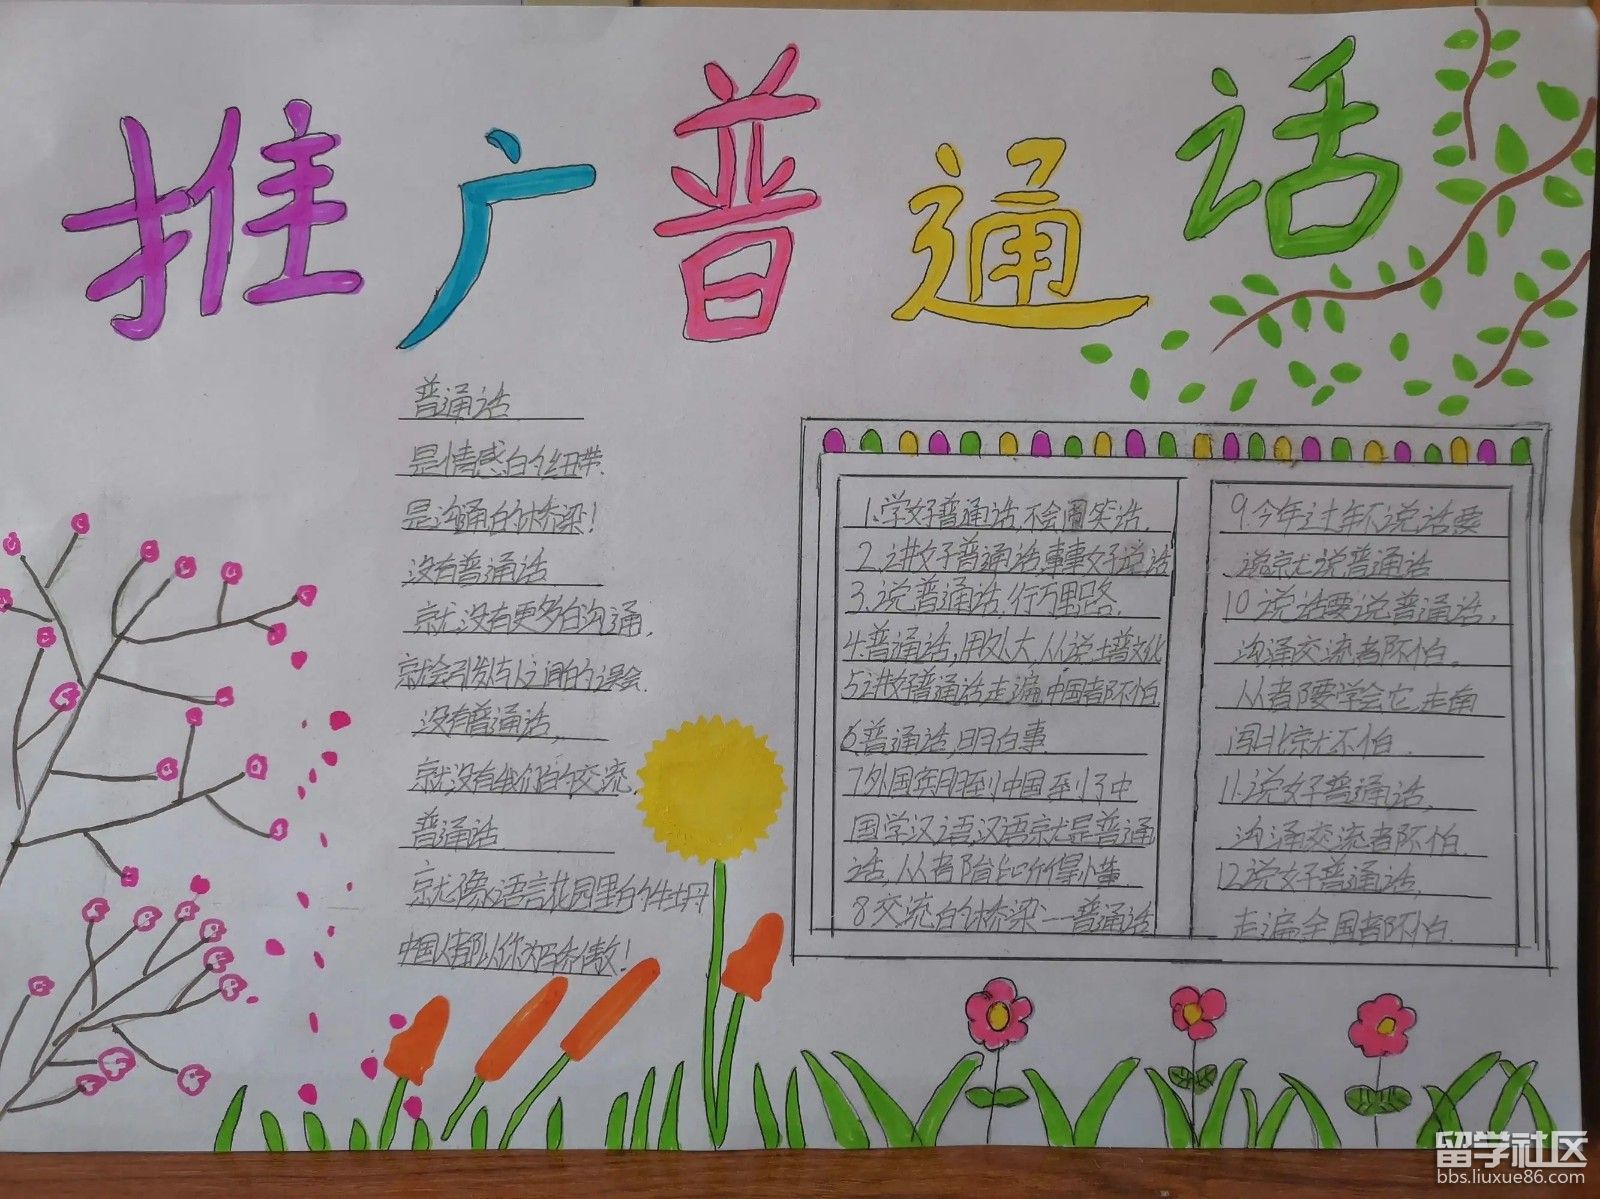 推广普通话
普通话
是情感的纽带.
是沟通的桥梁!
没有普通话
就没有更多的沟通,
就会引发人与人之间的误会.
没有普通话,
就没有我们的交流,
普通话
就像语言花园里的牡丹
中国人都以你为骄傲!
1.学好普通话,不会闹笑话.
2.讲好普通话,事事好说话
3.说普通话,行万里路.
4.普通话,用处大,从说
5讲好普通话走遍中国都不怕.
6.普通话,明白事.
7外国朋到中国到了中
国学汉语,汉语就是普通
话,
8交流的桥梁——普通话
9.今年过年不说话要
说就说普通话
10说话要说普通话,
沟通交流都不怕。
人人都要学会它,走南
闯北就不怕.
11.说好普通话,
沟通交流都不怕.
12.说好普通话,
走遍全国都不怕.
留学社区
bbs.liuxue86.com